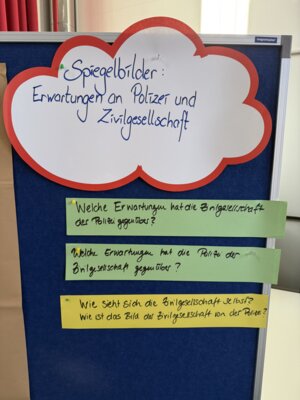 Spiegelbilder:
Erwartungen an Polizei und
Zivilgesellschaft
Welche Erwartungen hat die Zivilgesellschaft
der Polizei gegenüber?
Welche Erwartungen hat die Polizei der
Zivilgesellschaft gegenüber?
Wie sieht sich die Zivilgesellschaft selbst?
Wie ist das Bild der Zivilgesellschaft von der Polizei?